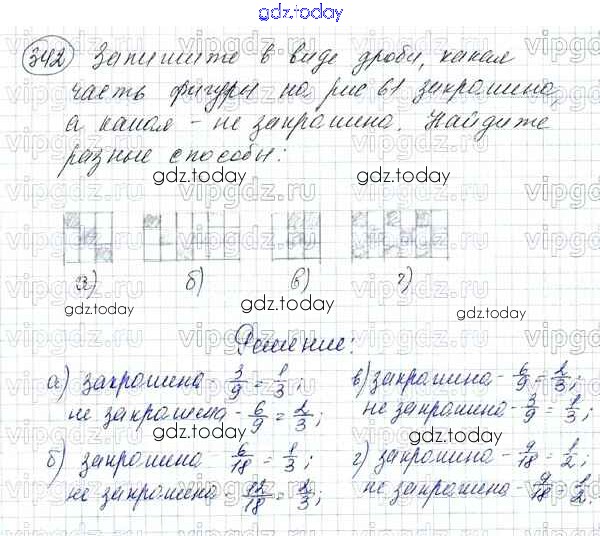 gdz.today
342 Запишите в виде дроби, какая
часть фигуры на рис 61 закрашена,
а какая - не закрашена. Найдите
разные способы:
gdz.today gdz.today
а) б) в) г)
gdz.today gdz.today gdz.today
Решение:
а) закрашена - 3/9 = 1/3; в) закрашена - 6/9 = 2/3;
не закрашена - 6/9 = 2/3; не закрашено - 3/9 = 1/3;
gdz.today gdz.today
б) закрашено - 6/18 = 1/3; г) закрашено - 9/18 = 1/2;
не закрашена - 12/18 = 2/3; не закрашена - 9/18 = 1/2.
gdz.today gdz.today